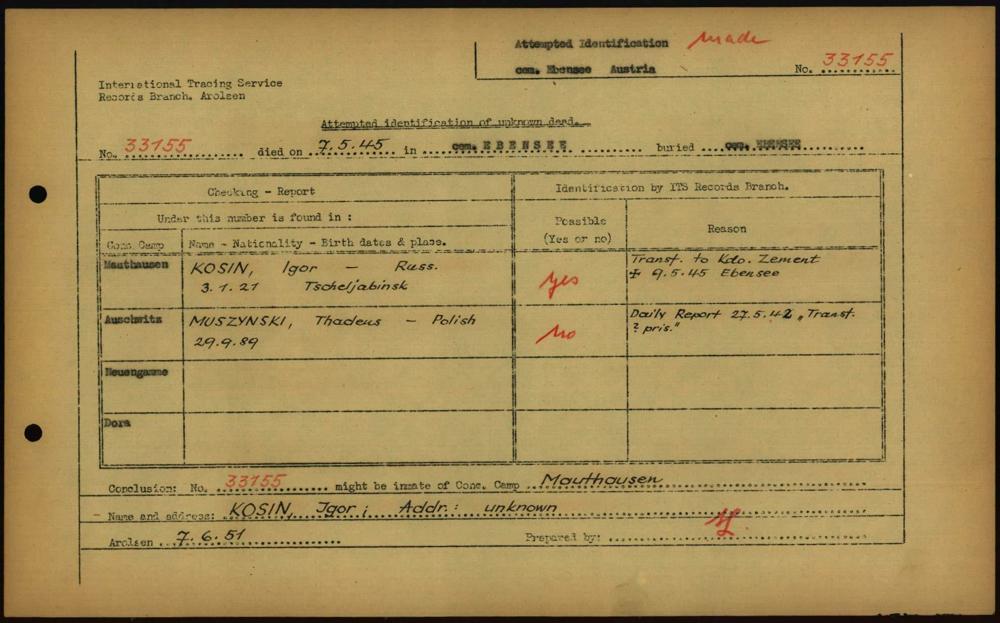 Attempted Identification made
cem. Ebensee Austria No. 33155
International Tracing Service
Records Branch. Arolsen
Attempted identification of unknown dead.
No. 33155 died on 7.5.45 in cem. EBENSEE buried cem. EBENSEE
Checking - Report
Identification by ITS Records Branch.
Under this number is found in :
Possible
(Yes or no)
Reason
Conc. Camp Name - Nationality - Birth dates & place.
Mauthausen KOSIN, Igor - Russ. yes Transf. to Kdo. Zement
3.1.21 Tscheljabinsk ✝ 9.5.45 Ebensee
Auschwitz MUSZYNSKI, Thadeus - Polish no Daily Report 27.5.42 „Transf.
29.9.89 ? pris."
Neuengamme
Dora
Conclusion: No. 33155 might be inmate of Conc. Camp Mauthausen
- Name and address: KOSIN, Igor; Addr.: unknown
Arolsen 7.6.51 Prepared by: